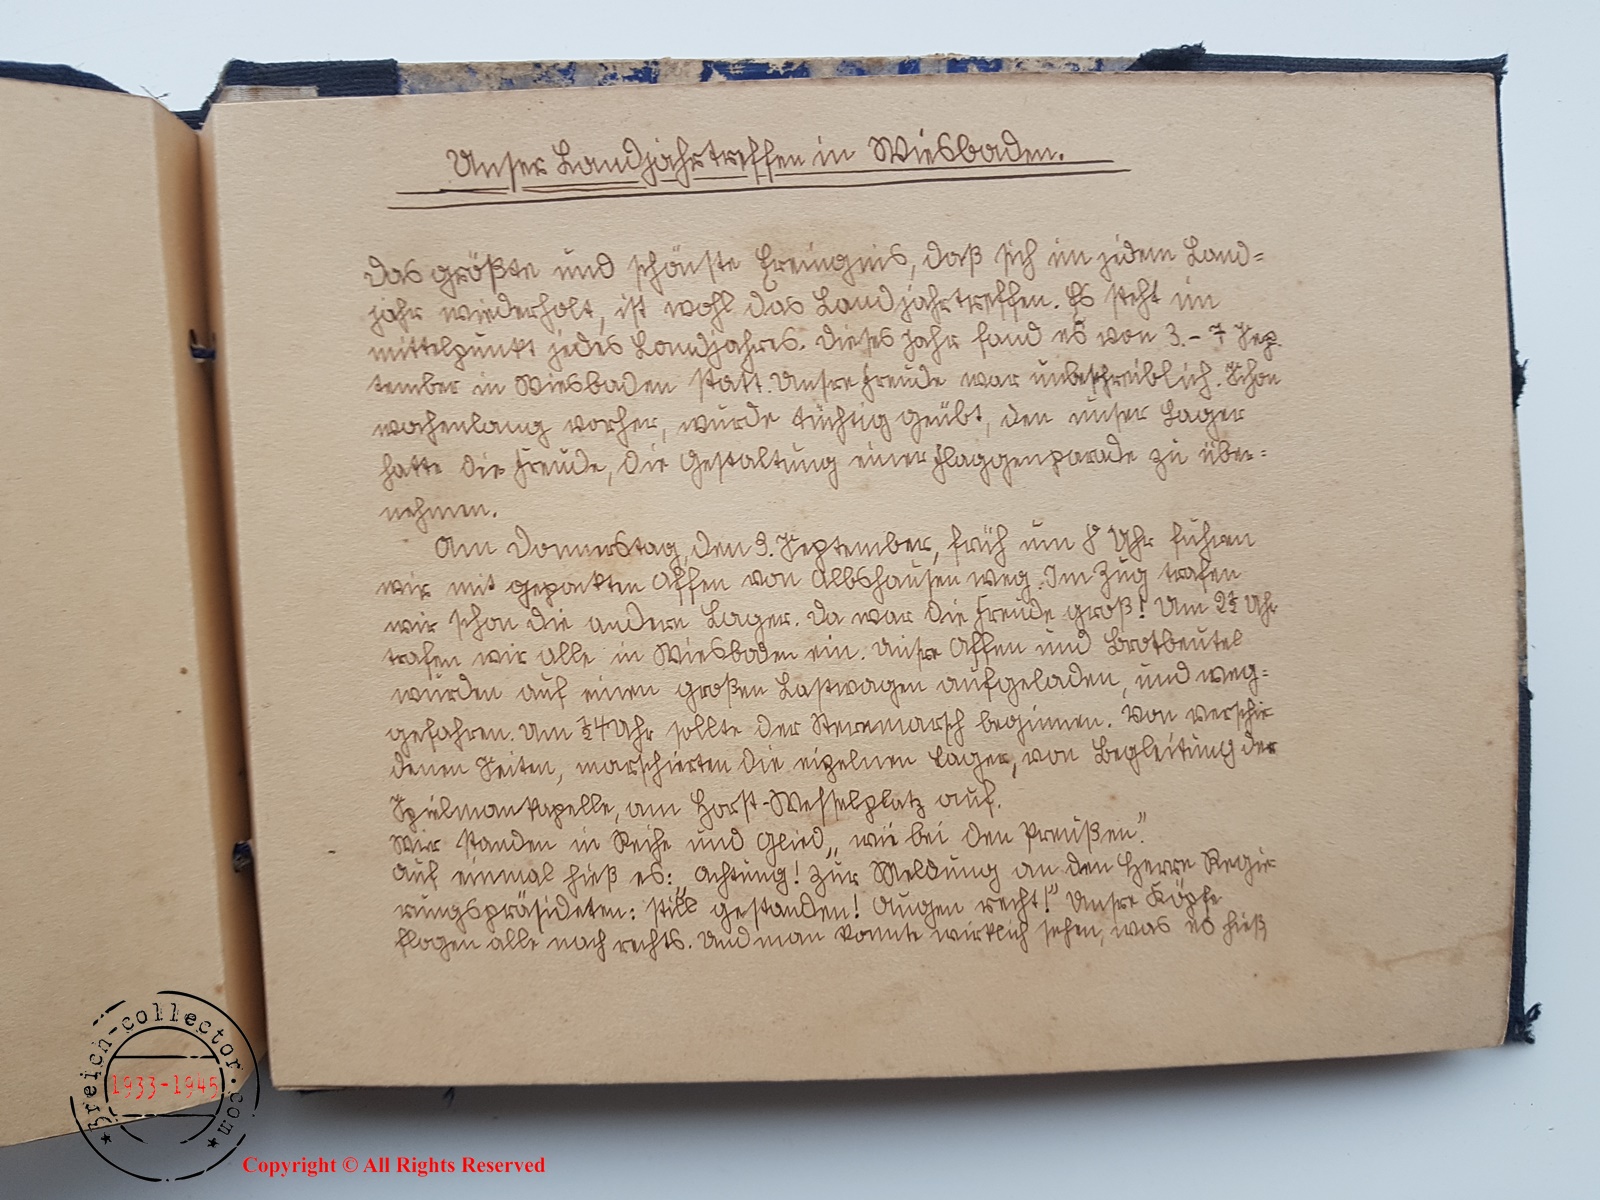 Unser Landjahrtreffen in Wiesbaden.
Das größte und schönste Ereingnis, daß sich im jedem Land=
jahr wiederholt, ist wohl das Landjahrtreffen. Es steht im
mittelpunkt jedes Landjahres. Dieses Jahr fand es von 3.- 7 Sep.
tember in Wiesbaden statt. Unsre Freude war unbeschreiblich. Schon
wochenlang vorher, wurde tüchtig geübt, den unser Lager
hatte die Freude, die Gestaltung einer Flaggenparade zu über=
nehmen.
Am Donnerstag, den 3. September, früh um 8 Uhr fuhren
wir mit gepakten Affen von Albshausen weg. Im Zug trafen
wir schon die andern Lager. Da war die Freude groß! Um Uhr
trafen wir alle in Wiesbaden ein. Unsre Affen und Brotbeutel
wurden auf einen großen Lastwagen aufgeladen, und weg=
gefahren. Um ½4 Uhr sollte der Sternmarsch beginnen. Von verschie
denen Seiten, marschierten die eizelnen Lager, von Begleitung der
Spielmankapelle, am Horst-Wesselplatz auf.
Wir standen in Reihe und Glied „wie bei den Preußen"
Auf einmal hieß es: „Achtung! Zur Meldung an den Herrn Regie
rungspräsideten: still gestanden! Augen recht!" Unsre Köpfe
flogen alle nach rechts. Und man konnte wirklich sehen, was es hieß
3reich-collector.com
1933-1945
Copyright © All Rights Reserved